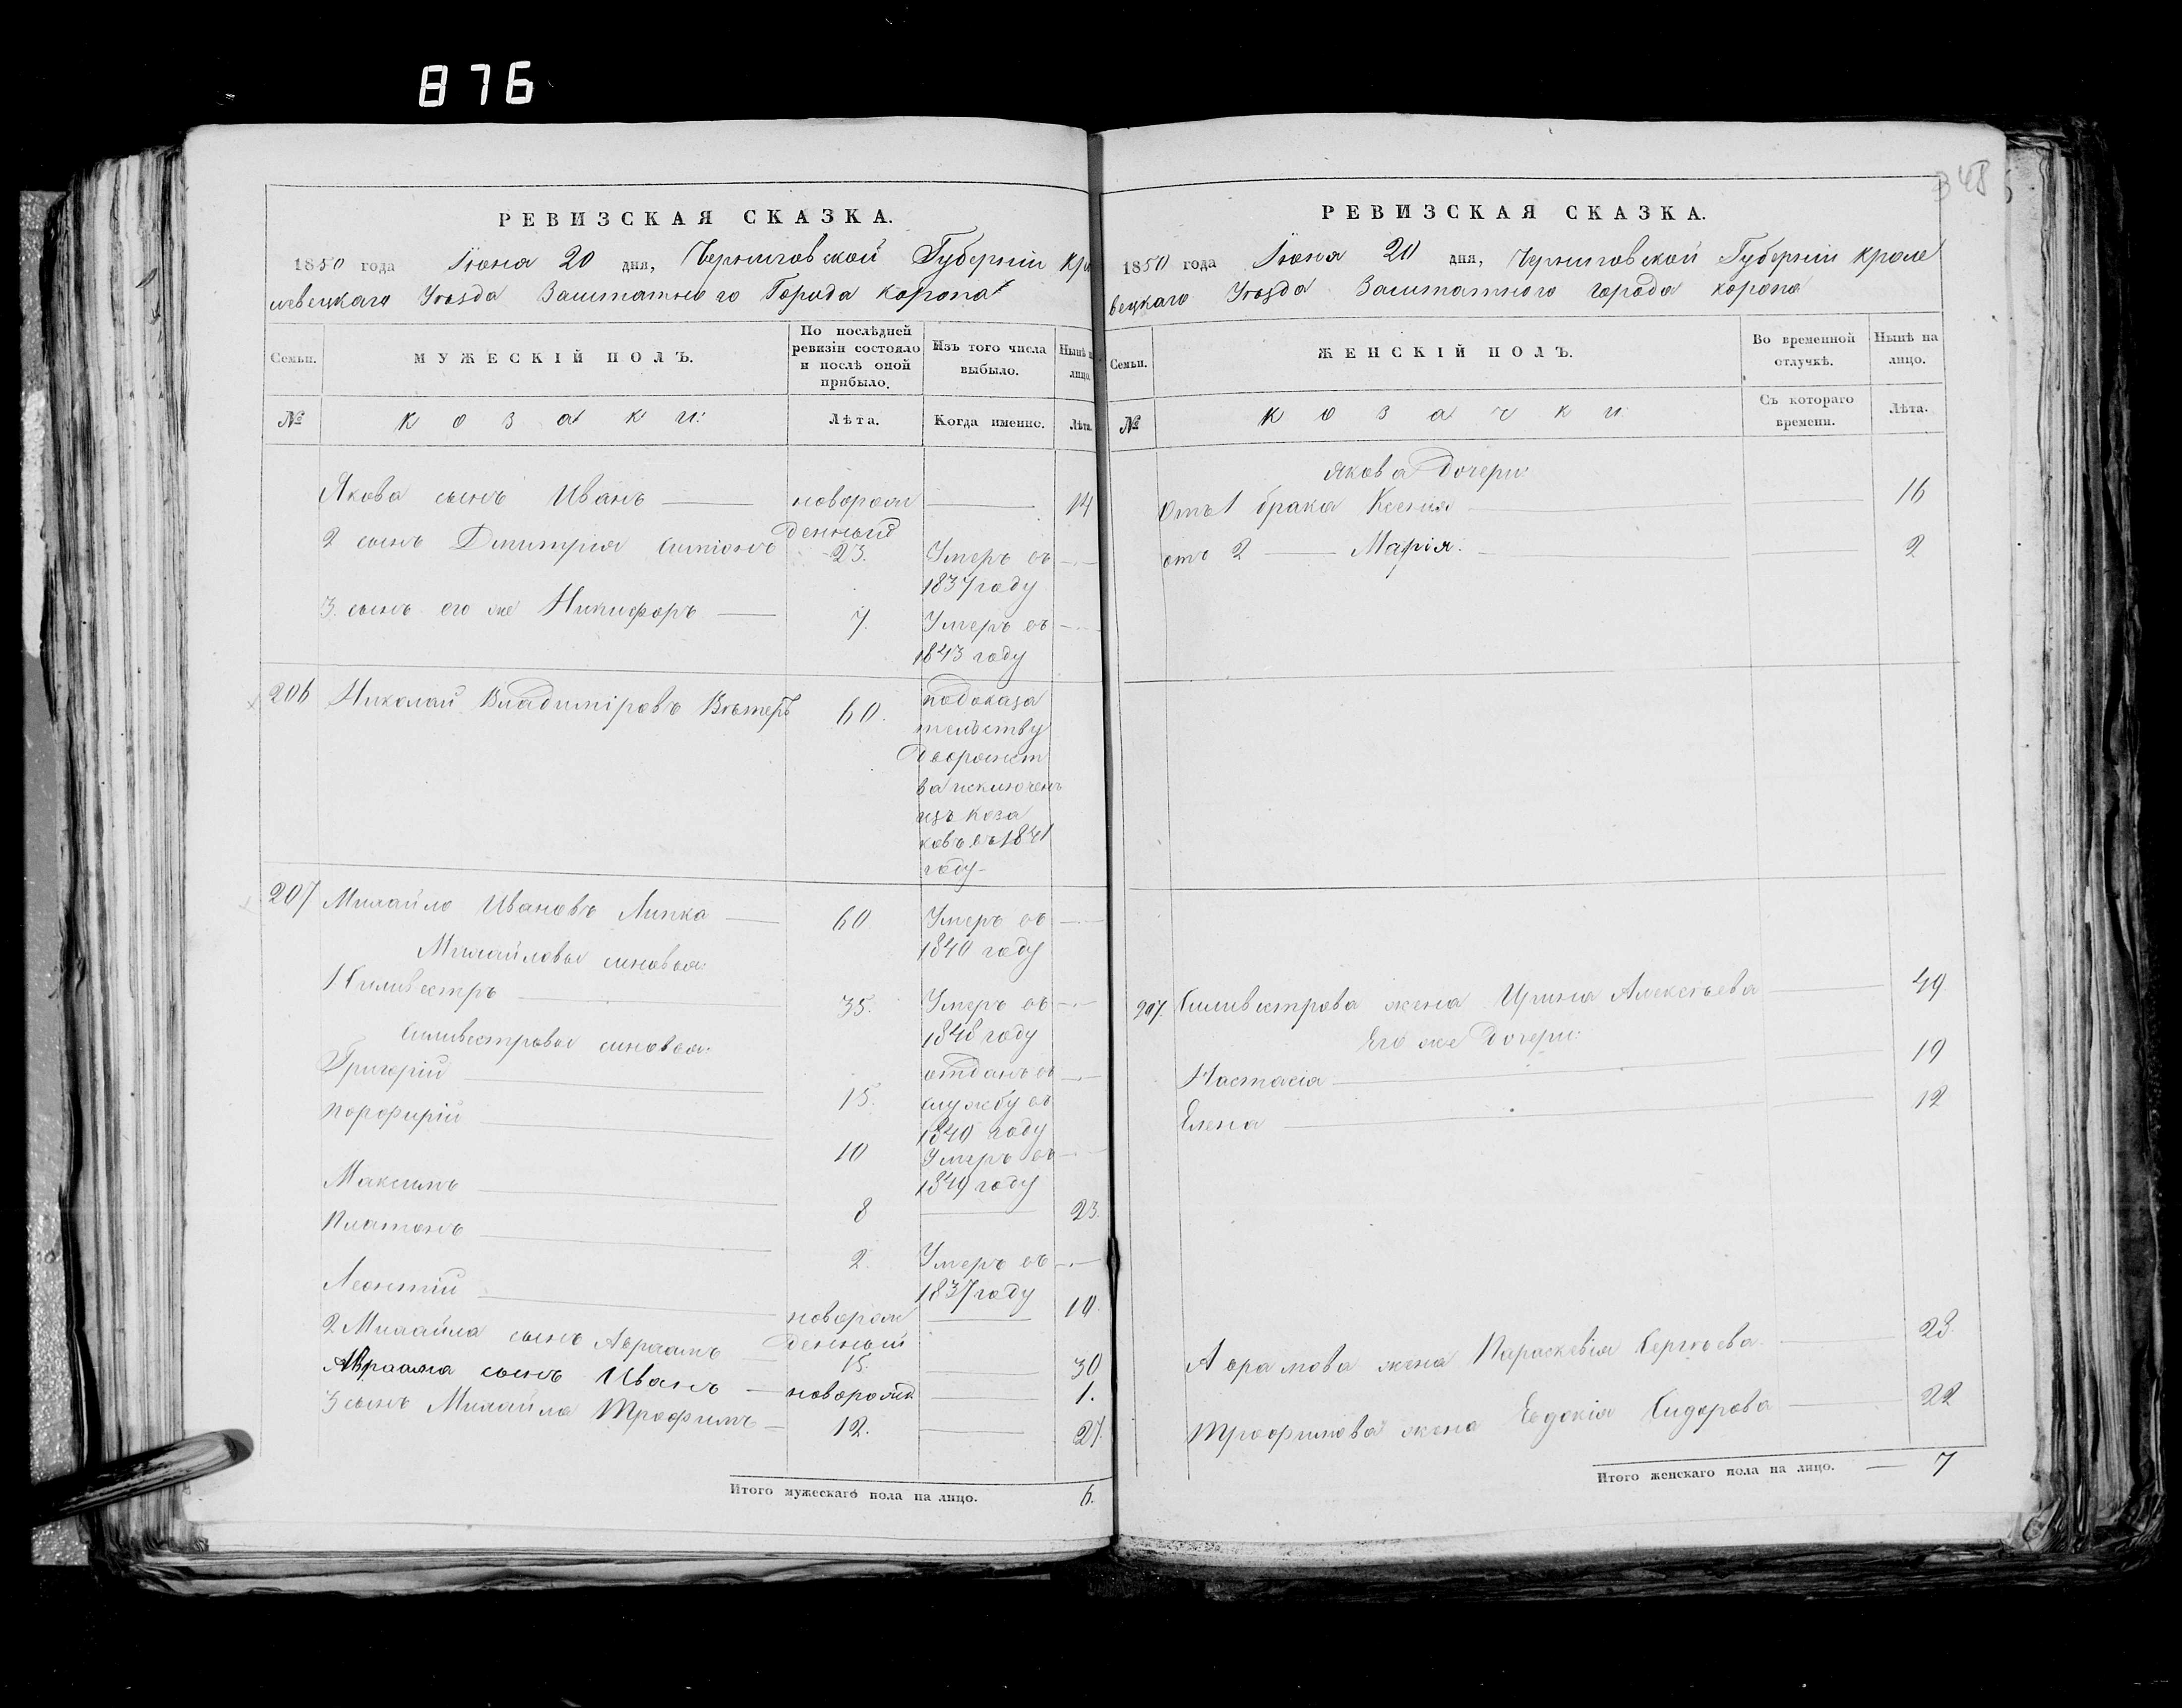 876
348
РЕВИЗСКАЯ СКАЗКА.
1850 года Іюня 20 дня, Черниговской Губерніи Кро
левецкаго Уѣзда Заштатнаго Города Коропа
Семьи.
МУЖЕСКІЙ ПОЛЪ.
По послѣдней
ревизіи состояло
и послѣ оной
прибыло.
Изъ того числа
выбыло.
Нынѣ н
лицо.
№
Козаки:
Лѣта.
Когда именно.
Лѣта.
Якова сынъ Иванъ — новорож — 14
денный
2 сынъ Дмитрія Симіонъ 23. Умеръ въ —
1837 году
3. сынъ его же Никифоръ — 7. Умеръ въ —
1843 году
206 Николай Владиміровъ Вѣтеръ 60. подоказа
тельству
Дворянст
ва исключенъ
изъ коза
ковъ въ 1841
году
207 Михайло Ивановъ Липка — 60. Умеръ въ —
1840 году
Михайловы сыновья:
1 Силивестръ — 35. Умеръ въ —
1848 году
Силивестровы сыновья:
Григорій — 15. отданъ въ —
службу въ
1840 году
Порфирій — 10 Умеръ въ —
1849 году
Максимъ — 8 — 23.
Платонъ — 2. Умеръ въ —
1837 году
Леонтій — новорож — 10.
денный
2 Михайла сынъ Авраамъ 15. — 30
Авраама сынъ Иванъ — новорожд — 1.
3 сынъ Михайла Трофимъ — 12. — 27.
Итого мужескаго пола на лицо. 6.
РЕВИЗСКАЯ СКАЗКА.
1850 года Іюня 20 дня, Черниговской Губерніи Кроле
вецкаго Уѣзда Заштатнаго города Коропа
Семьи.
ЖЕНСКІЙ ПОЛЪ.
Во временной
отлучкѣ.
Нынѣ на
лицо.
№
Козачки
Съ котораго
времени.
Лѣта.
Якова Дочери
Отъ 1 брака Ксенія — 16
отъ 2 — Марія. — 2
207. Силивестрова жена Ирина Алексѣева — 49
Его же Дочери:
Настасія — 19
Елена — 12
Аврамова жена Параскевія Сергѣева — 28.
Трофимова жена Евдокія Сидорова — 22
Итого женскаго пола на лицо. — 7